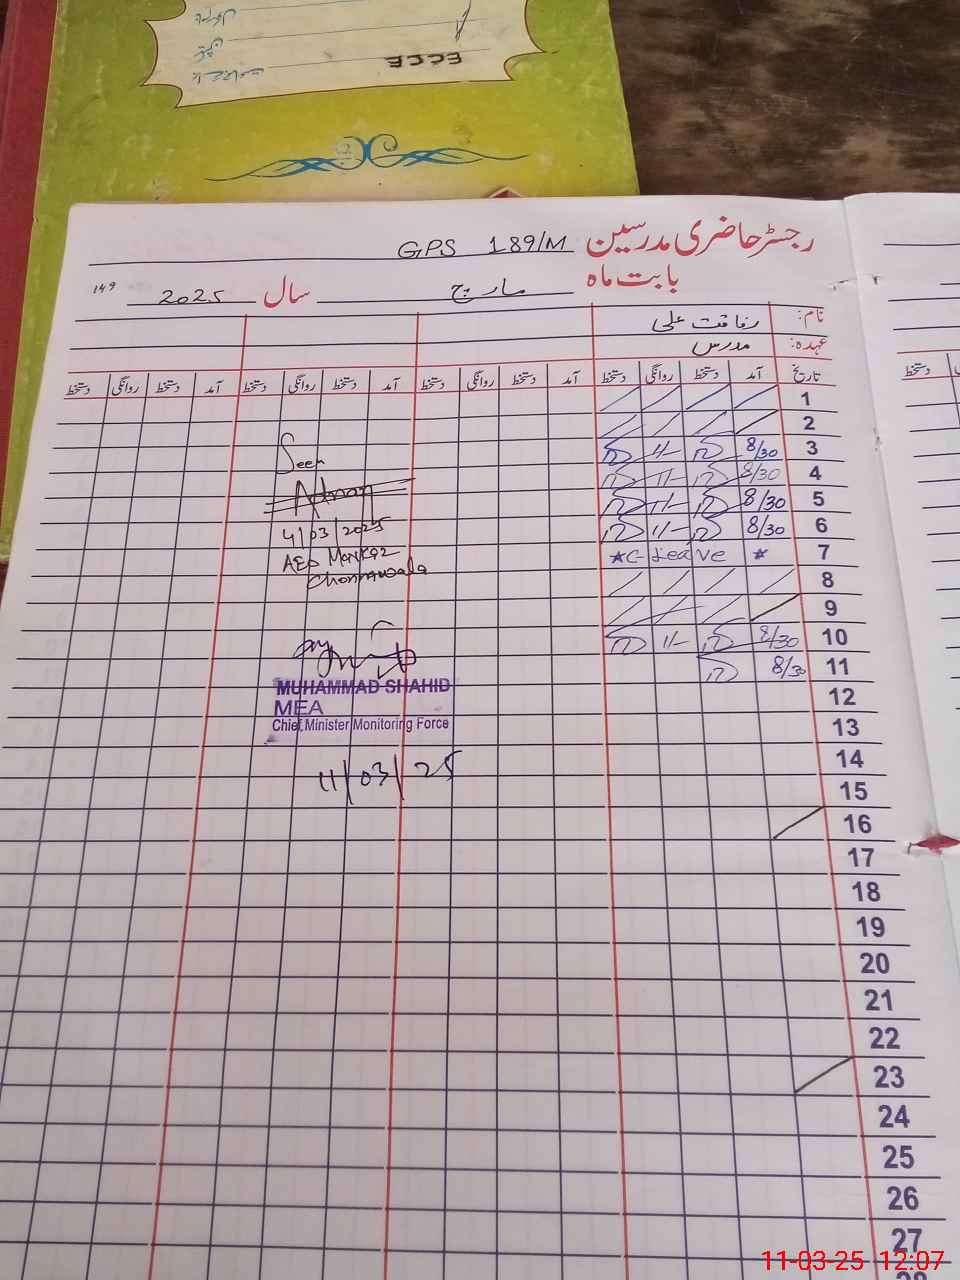 ECCE
رجسٹر حاضری مدرسین GPS 189/M
بابت ماہ مارچ سال 2025 149
نام: رفاقت علی
عہدہ: مدرس
تاریخ آمد دستخط روانگی دستخط آمد دستخط روانگی دستخط آمد دستخط روانگی دستخط
دستخط
1
2
3 8/30 11/-
4 8/30 11/-
5 8/30 11/-
6 8/30 11/-
7 * C-Leave *
8
9
10 8/30 11/-
11 8/30
12
13
14
15
16
17
18
19
20
21
22
23
24
25
26
27
28
Seen
Adnan
4/03/2025
AEO Markaz
Channawala
MUHAMMAD SHAHID
MEA
Chief Minister Monitoring Force
11/03/25
11-03-25 12:07